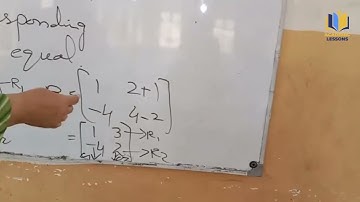 sponding
equal
-R₁ = [ 1 2+1
-4 4-2 ]
= [ 1 3 ] → R₁
-4 2 → R₂
LESSONS